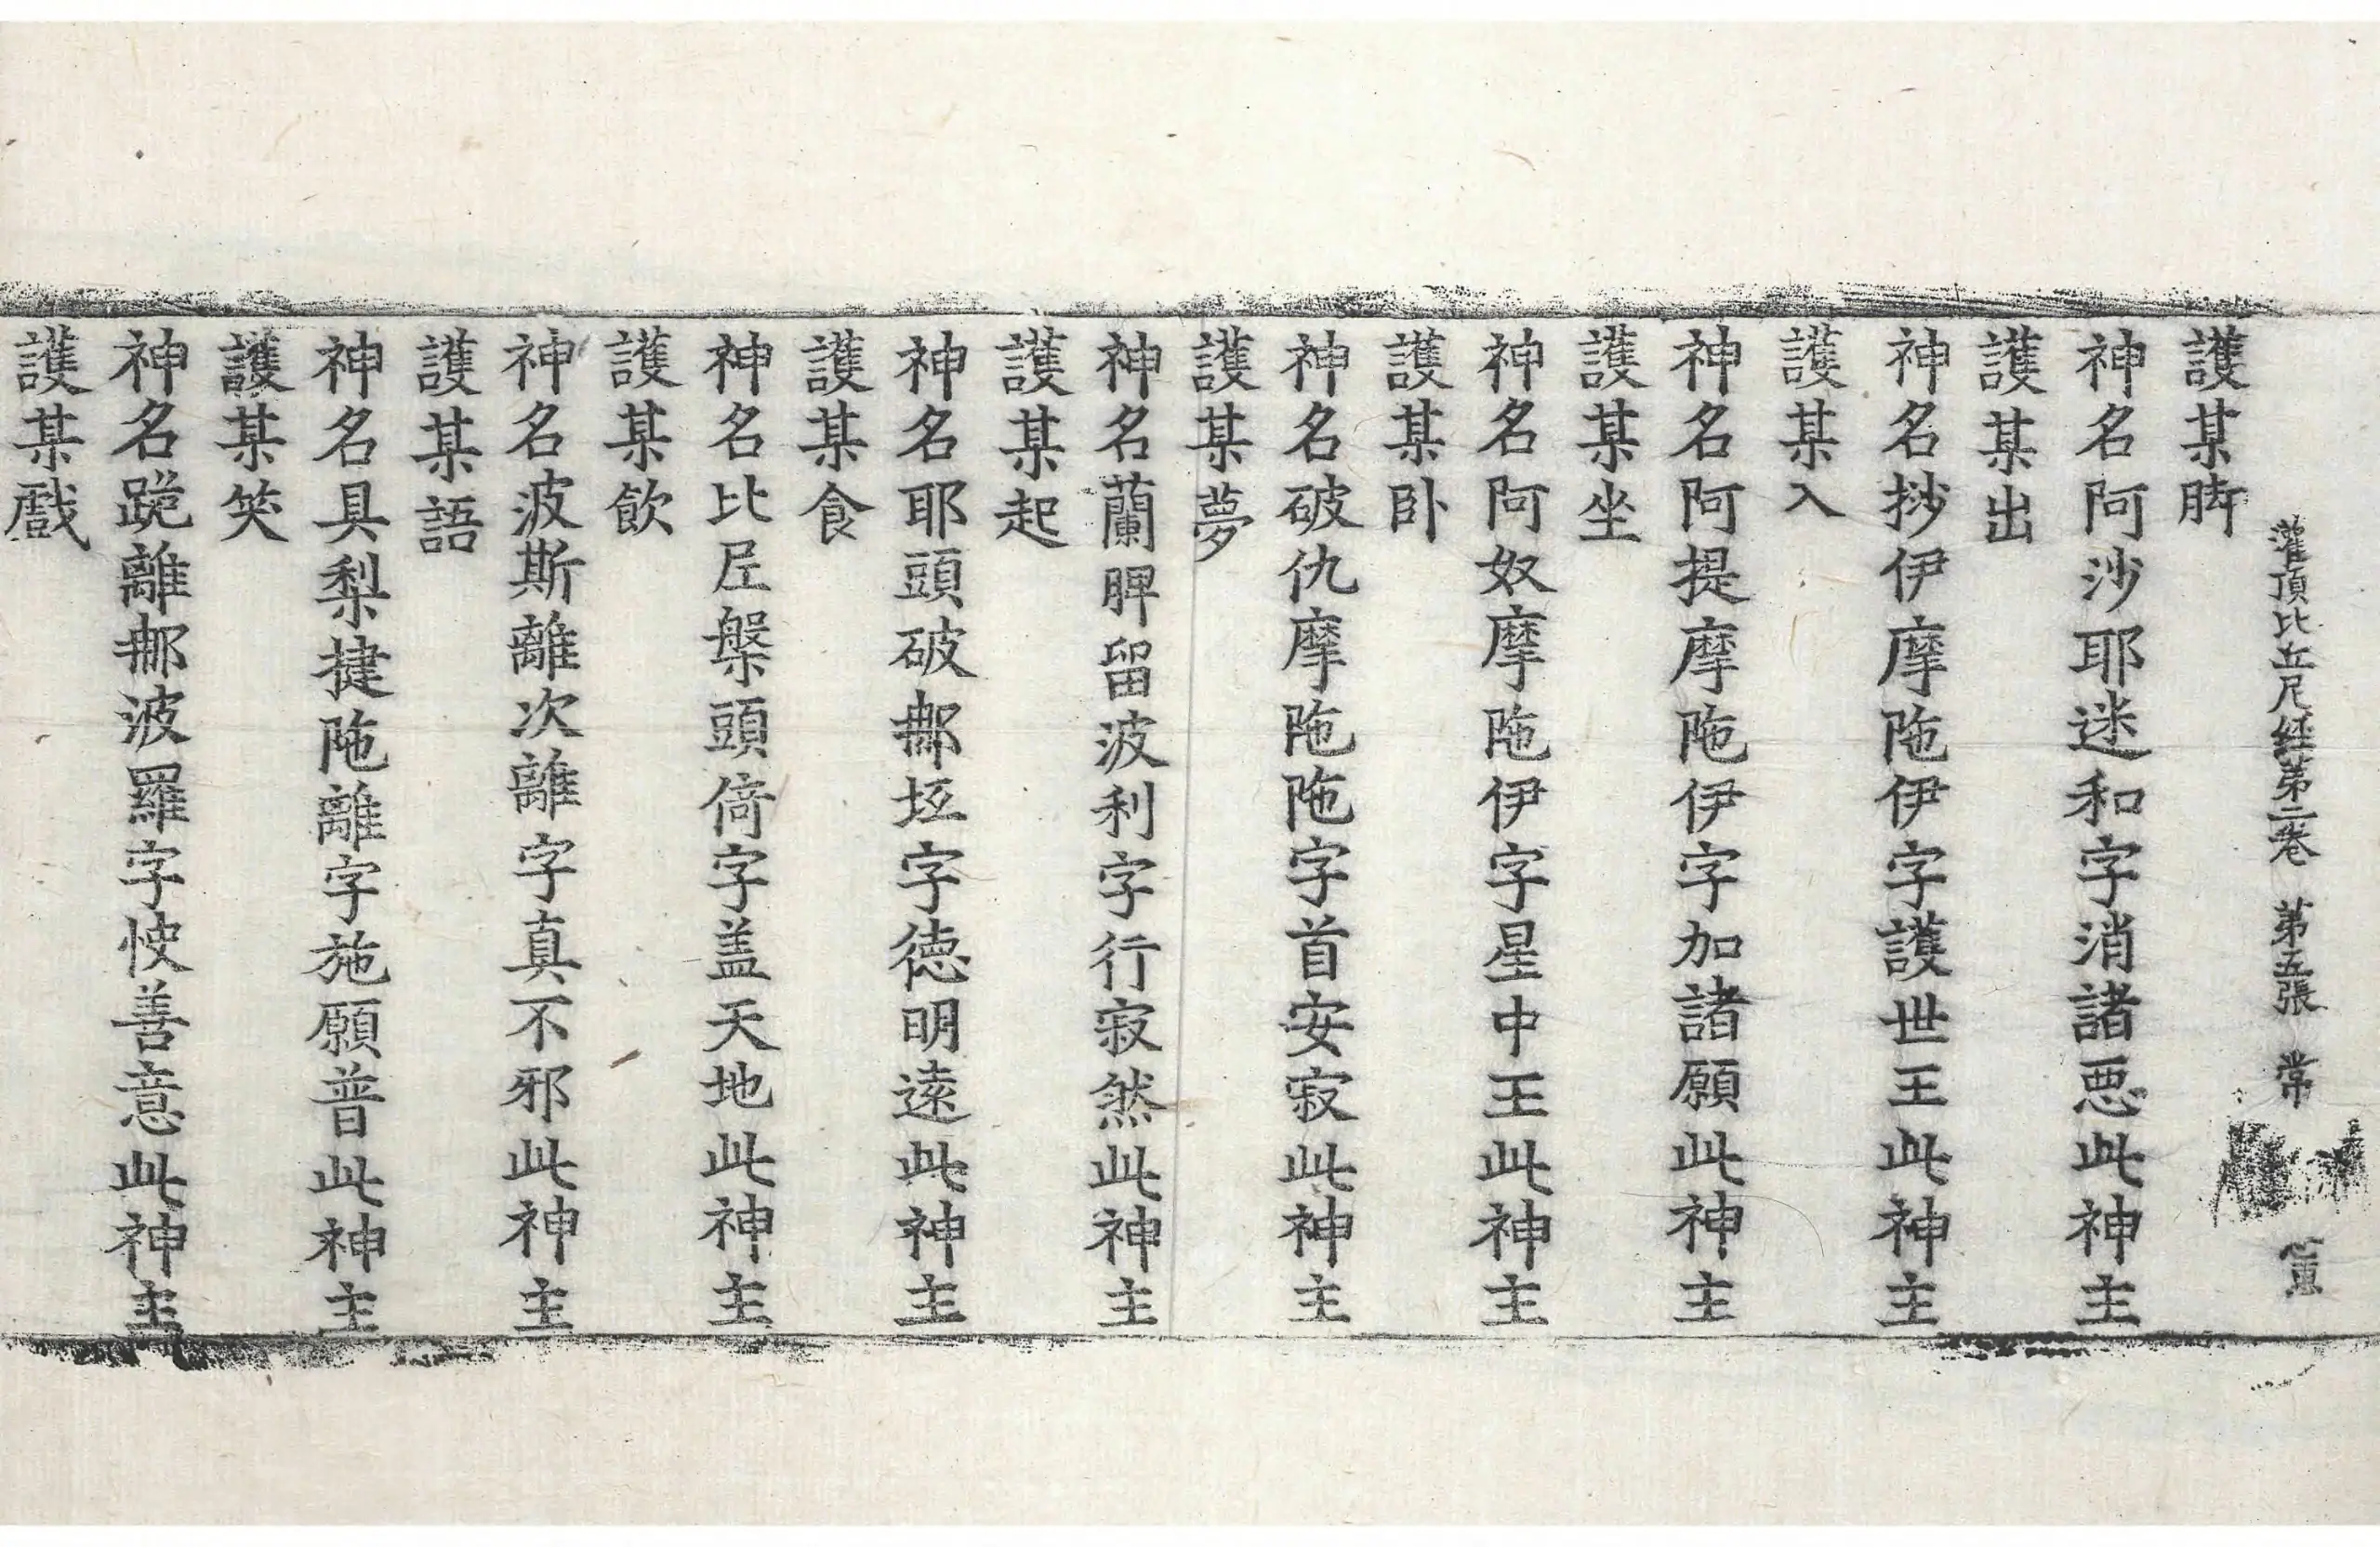 灌頂比丘尼經第二卷　第五張　常
護某脚
神名阿沙耶迷和字消諸惡此神主
護某出
神名抄伊摩陁伊字護世王此神主
護某入
神名阿提摩陁伊字加諸願此神主
護某坐
神名阿奴摩陁伊字星中王此神主
護某卧
神名破仇摩陁陁字首安寂此神主
護某夢
神名蘭脾留波利字行寂然此神主
護某起
神名耶頭破㖠坘字德明遠此神主
護某食
神名比㞐槃頭倚字盖天地此神主
護某飲
神名波斯離次離字真不邪此神主
護某語
神名具梨揵陁離字施願普此神主
護某笑
神名跪離那波羅字快善意此神主
護某戲